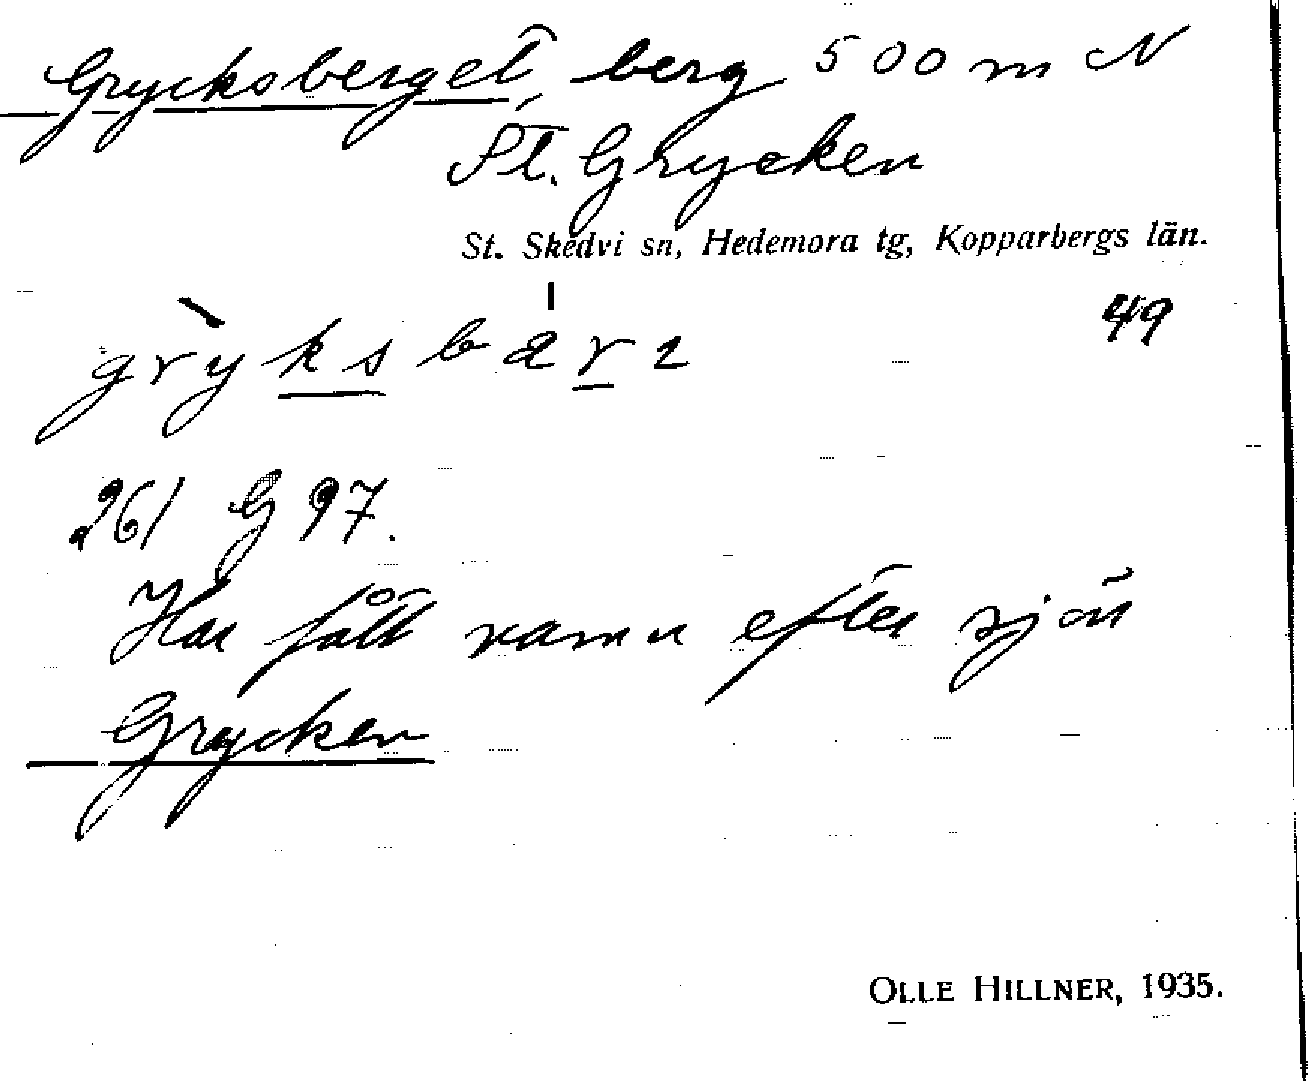 Grycksberget, berg 500 m N
St. Grycken
St. Skedvi sn, Hedemora tg, Kopparbergs län.
49
gryksbärı
261 G 97.
Har fått namn efter sjön
Grycken
OLLE HILLNER, 1935.